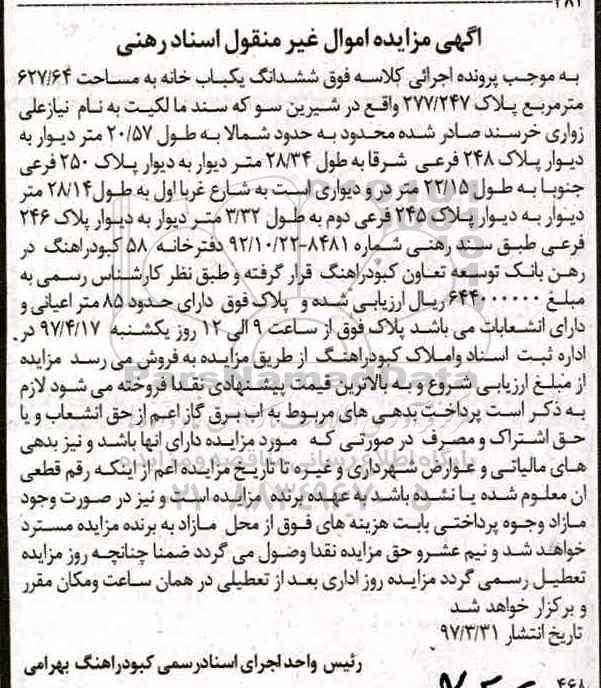 ۲۸۲
آگهی مزایده اموال غیر منقول اسناد رهنی
به موجب پرونده اجرائی کلاسه فوق ششدانگ یکباب خانه به مساحت ۶۲۷/۶۴
مترمربع پلاک ۲۷۷/۲۴۷ واقع در شیرین سو که سند ما لکیت به نام نیازعلی
زواری خرسند صادر شده محدود به حدود شمالا به طول ۲۰/۵۷ متر دیوار به
دیوار پلاک ۲۴۸ فرعی شرقا به طول ۲۸/۳۴ متر دیوار به دیوار پلاک ۲۵۰ فرعی
جنوبا به طول ۲۲/۱۵ متر در و دیواری است به شارع غربا اول به طول ۲۸/۱۴ متر
دیوار به دیوار پلاک ۲۴۵ فرعی دوم به طول ۳/۳۲ متر دیوار به دیوار پلاک ۲۴۶
فرعی طبق سند رهنی شماره ۸۴۸۱-۹۲/۱۰/۲۲ دفترخانه ۵۸ کبودراهنگ در
رهن بانک توسعه تعاون کبودراهنگ قرار گرفته و طبق نظر کارشناس رسمی به
مبلغ ۶۴۴۰۰۰۰۰۰ ریال ارزیابی شده و پلاک فوق دارای حدود ۸۵ متر اعیانی و
دارای انشعابات می باشد پلاک فوق از ساعت ۹ الی ۱۲ روز یکشنبه ۹۷/۴/۱۷ در
اداره ثبت اسناد واملاک کبودراهنگ از طریق مزایده به فروش می رسد مزایده
از مبلغ ارزیابی شروع و به بالاترین قیمت پیشنهادی نقدا فروخته می شود لازم
به ذکر است پرداخت بدهی های مربوط به اب برق گاز اعم از حق انشعاب و یا
حق اشتراک و مصرف در صورتی که مورد مزایده دارای انها باشد و نیز بدهی
های مالیاتی و عوارض شهرداری و غیره تا تاریخ مزایده اعم از اینکه رقم قطعی
ان معلوم شده یا نشده باشد به عهده برنده مزایده است و نیز در صورت وجود
مازاد وجوه پرداختی بابت هزینه های فوق از محل مازاد به برنده مزایده مسترد
خواهند شد و نیم عشرو حق مزایده نقدا وصول می گردد ضمنا چنانچه روز مزایده
تعطیل رسمی گردد مزایده روز اداری بعد از تعطیلی در همان ساعت ومکان مقرر
و برگزار خواهد شد
تاریخ انتشار ۹۷/۳/۳۱
رئیس واحد اجرای اسناد رسمی کبودراهنگ بهرامی
۴۶۸
ParsNamadData
پایگاه اطلاع رسانی مناقصه و مزایده